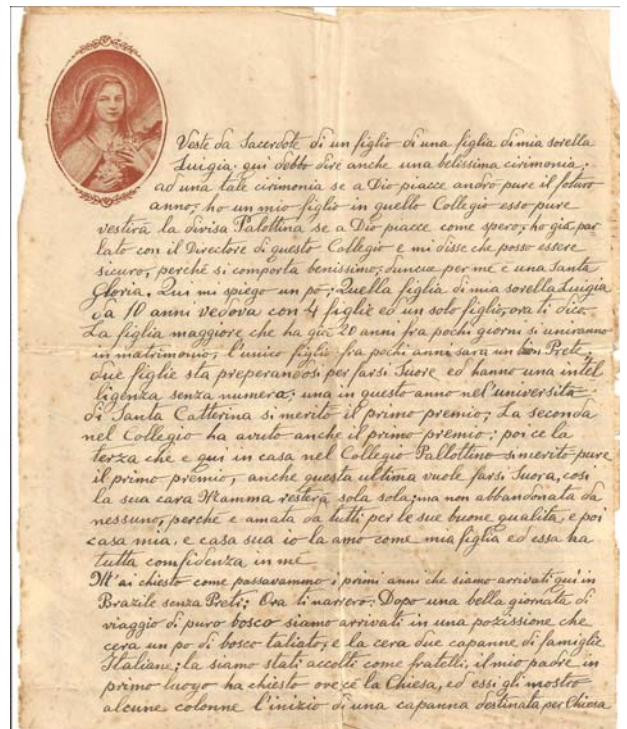 Veste da Sacerdote di un figlio di una figlia di mia sorella
Luigia. qui debbo dire anche una belissima cirimonia;
ad una tale cirimonia se a Dio piacce andrò pure il foturo
anno; ho un mio figlio in quello Collegio esso pure
vestirà la divisa Palottina se a Dio piacce come spero; ho già par
lato con il Directore di questo Collegio e mi disse che posso essere
sicuro, perché si comporta benissimo; duncue per me è una Santa
Gloria. Qui mi spiego un pò; Quella figlia di mia sorella Luigia
da 10 anni vedova con 4 figlie ed un solo figlio, ora ti dico.
La figlia maggiore che ha già 20 anni fra pochi giorni si uniranno
in matrimonio, l'unico figlio fra pochi anni sarà un bon Prete,
due figlie sta preperandosi per farsi Suore ed hanno una intel
ligenza senza numera; una in questo anno nel'università
di Santa Catterina si meritò il primo premio; La seconda
nel Collegio ha avuto anche il primo premio; poi ce la
terza che e qui in casa nel Collegio Pallottino si meritò pure
il primo premio, anche questa ultima vuole farsi Suora, così
la sua cara Mamma resterà sola sola; ma non abbandonata da
nessuno, perche e amata da tutti per le sue buone qualità, e poi
casa mia, e casa sua io la amo come mia figlia ed essa ha
tutta comfidenza in me
M'ai chiesto come passavammo i primi anni che siamo arrivati qui in
Brazile senza Preti; Ora ti narrerò: Dopo una bella giornata di
viaggio di puro bosco siamo arrivati in una pozissione che
cera un po di bosco taliato, e la cera due capanne di famiglie
Italiane; la siamo stati accolti come fratelli, il mio padre in
primo luogo ha chiesto ove cè la Chiesa, ed essi gli mostrò
alcune colonne l'inizio di una capanna destinata per Chiesa